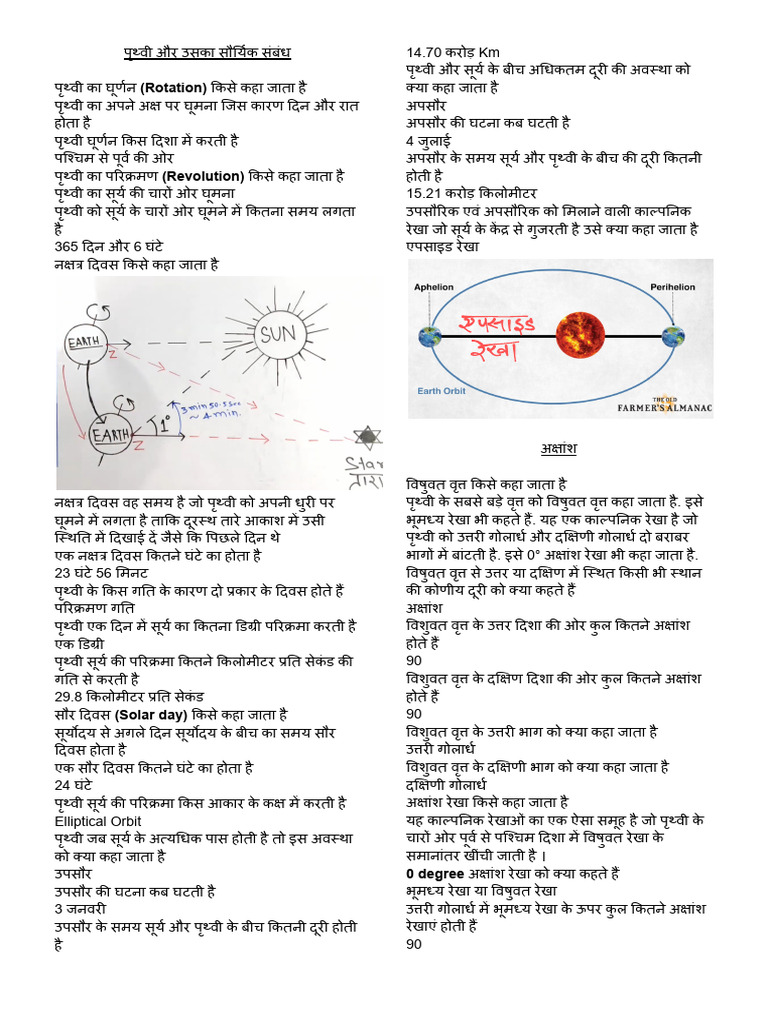 पृथ्वी और उसका सौर्यिक संबंध
पृथ्वी का घूर्णन (Rotation) किसे कहा जाता है
पृथ्वी का अपने अक्ष पर घूमना जिस कारण दिन और रात
होता है
पृथ्वी घूर्णन किस दिशा में करती है
पश्चिम से पूर्व की ओर
पृथ्वी का परिक्रमण (Revolution) किसे कहा जाता है
पृथ्वी का सूर्य की चारों ओर घूमना
पृथ्वी को सूर्य के चारों ओर घूमने में कितना समय लगता
है
365 दिन और 6 घंटे
नक्षत्र दिवस किसे कहा जाता है
SUN
EARTH
Z
3 min 50.5 sec
~ 4 min.
1°
EARTH
Z
Star
तारा
नक्षत्र दिवस वह समय है जो पृथ्वी को अपनी धुरी पर
घूमने में लगता है ताकि दूरस्थ तारे आकाश में उसी
स्थिति में दिखाई दें जैसे कि पिछले दिन थे
एक नक्षत्र दिवस कितने घंटे का होता है
23 घंटे 56 मिनट
पृथ्वी के किस गति के कारण दो प्रकार के दिवस होते हैं
परिक्रमण गति
पृथ्वी एक दिन में सूर्य का कितना डिग्री परिक्रमा करती है
एक डिग्री
पृथ्वी सूर्य की परिक्रमा कितने किलोमीटर प्रति सेकंड की
गति से करती है
29.8 किलोमीटर प्रति सेकंड
सौर दिवस (Solar day) किसे कहा जाता है
सूर्योदय से अगले दिन सूर्योदय के बीच का समय सौर
दिवस होता है
एक सौर दिवस कितने घंटे का होता है
24 घंटे
पृथ्वी सूर्य की परिक्रमा किस आकार के कक्ष में करती है
Elliptical Orbit
पृथ्वी जब सूर्य के अत्यधिक पास होती है तो इस अवस्था
को क्या कहा जाता है
उपसौर
उपसौर की घटना कब घटती है
3 जनवरी
उपसौर के समय सूर्य और पृथ्वी के बीच कितनी दूरी होती
है
14.70 करोड़ Km
पृथ्वी और सूर्य के बीच अधिकतम दूरी की अवस्था को
क्या कहा जाता है
अपसौर
अपसौर की घटना कब घटती है
4 जुलाई
अपसौर के समय सूर्य और पृथ्वी के बीच की दूरी कितनी
होती है
15.21 करोड़ किलोमीटर
उपसौरिक एवं अपसौरिक को मिलाने वाली काल्पनिक
रेखा जो सूर्य के केंद्र से गुजरती है उसे क्या कहा जाता है
एपसाइड रेखा
Aphelion
Perihelion
एप्साइड
रेखा
Earth Orbit
THE OLD
FARMER'S ALMANAC
अक्षांश
विषुवत वृत्त किसे कहा जाता है
पृथ्वी के सबसे बड़े वृत्त को विषुवत वृत्त कहा जाता है. इसे
भूमध्य रेखा भी कहते हैं. यह एक काल्पनिक रेखा है जो
पृथ्वी को उत्तरी गोलार्ध और दक्षिणी गोलार्ध दो बराबर
भागों में बांटती है. इसे 0° अक्षांश रेखा भी कहा जाता है.
विषुवत वृत्त से उत्तर या दक्षिण में स्थित किसी भी स्थान
की कोणीय दूरी को क्या कहते हैं
अक्षांश
विशुवत वृत्त के उत्तर दिशा की ओर कुल कितने अक्षांश
होते हैं
90
विशुवत वृत्त के दक्षिण दिशा की ओर कुल कितने अक्षांश
होते हैं
90
विशुवत वृत्त के उत्तरी भाग को क्या कहा जाता है
उत्तरी गोलार्ध
विशुवत वृत्त के दक्षिणी भाग को क्या कहा जाता है
दक्षिणी गोलार्ध
अक्षांश रेखा किसे कहा जाता है
यह काल्पनिक रेखाओं का एक ऐसा समूह है जो पृथ्वी के
चारों ओर पूर्व से पश्चिम दिशा में विषुवत रेखा के
समानांतर खींची जाती है ।
0 degree अक्षांश रेखा को क्या कहते हैं
भूमध्य रेखा या विषुवत रेखा
उत्तरी गोलार्ध में भूमध्य रेखा के ऊपर कुल कितने अक्षांश
रेखाएं होती हैं
90